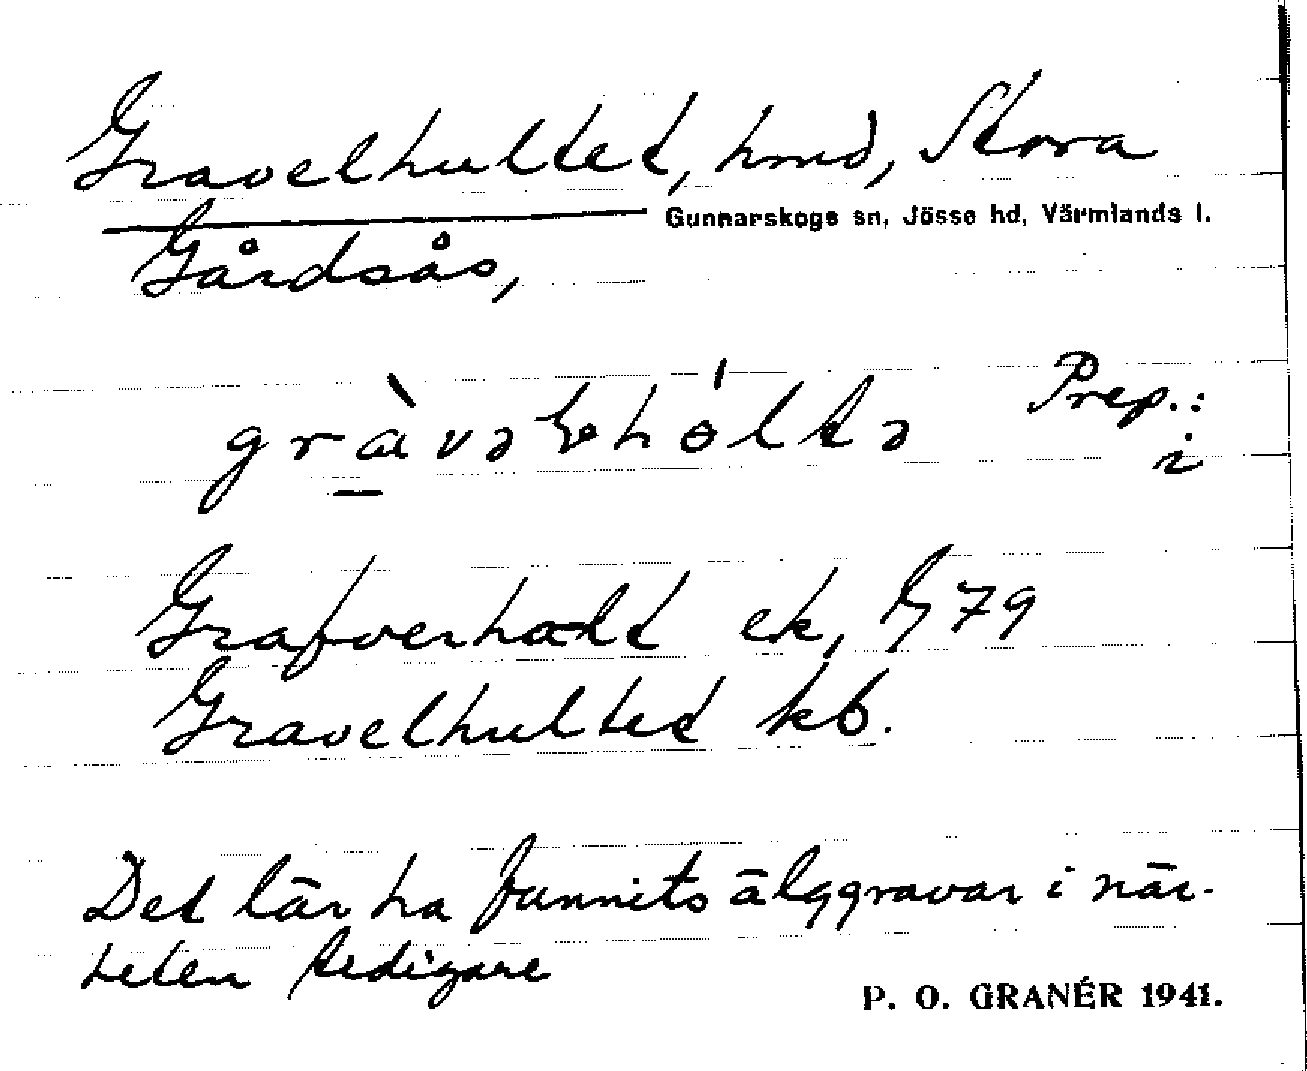 Gravelhultet, hmd, Stora
Gunnarskogs sn, Jösse hd, Värmlands l.
Gårdsås,
Prep.:
i
Grafverhatt ek, G 79
Gravelhultet kb.
Det lär ha funnits älggravar i när-
heten tidigare
P. O. GRANÉR 1941.